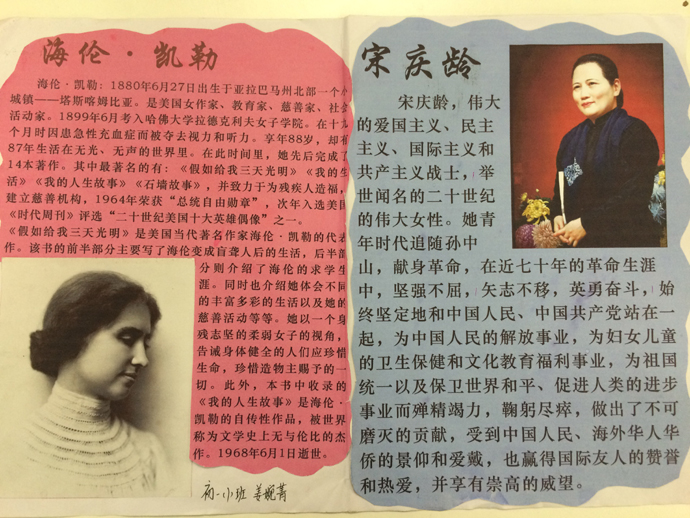 海伦·凯勒
海伦·凯勒：1880年6月27日出生于亚拉巴马州北部一个小
城镇——塔斯喀姆比亚。是美国女作家、教育家、慈善家、社会
活动家。1899年6月考入哈佛大学拉德克利夫女子学院。在十九
个月时因患急性充血症而被夺去视力和听力。享年88岁，却有
87年生活在无光、无声的世界里。在此时间里，她先后完成了
14本著作。其中最著名的有：《假如给我三天光明》《我的生
活》《我的人生故事》《石墙故事》，并致力于为残疾人造福，
建立慈善机构，1964年荣获“总统自由勋章”，次年入选美国
《时代周刊》评选“二十世纪美国十大英雄偶像”之一。
《假如给我三天光明》是美国当代著名作家海伦·凯勒的代表
作。该书的前半部分主要写了海伦变成盲聋人后的生活，后半部
分则介绍了海伦的求学生
涯。同时也介绍她体会不同
的丰富多彩的生活以及她的
慈善活动等等。她以一个身
残志坚的柔弱女子的视角，
告诫身体健全的人们应珍惜
生命，珍惜造物主赐予的一
切。此外，本书中收录的
《我的人生故事》是海伦·
凯勒的自传性作品，被世界
称为文学史上无与伦比的杰
作。1968年6月1日逝世。
初一小班 姜婉菁
宋庆龄
宋庆龄，伟大
的爱国主义、民主
主义、国际主义和
共产主义战士，举
世闻名的二十世纪
的伟大女性。她青
年时代追随孙中
山，献身革命，在近七十年的革命生涯
中，坚强不屈，矢志不移，英勇奋斗，始
终坚定地和中国人民、中国共产党站在一
起，为中国人民的解放事业，为妇女儿童
的卫生保健和文化教育福利事业，为祖国
统一以及保卫世界和平、促进人类的进步
事业而殚精竭力，鞠躬尽瘁，做出了不可
磨灭的贡献，受到中国人民、海外华人华
侨的景仰和爱戴，也赢得国际友人的赞誉
和热爱，并享有崇高的威望。